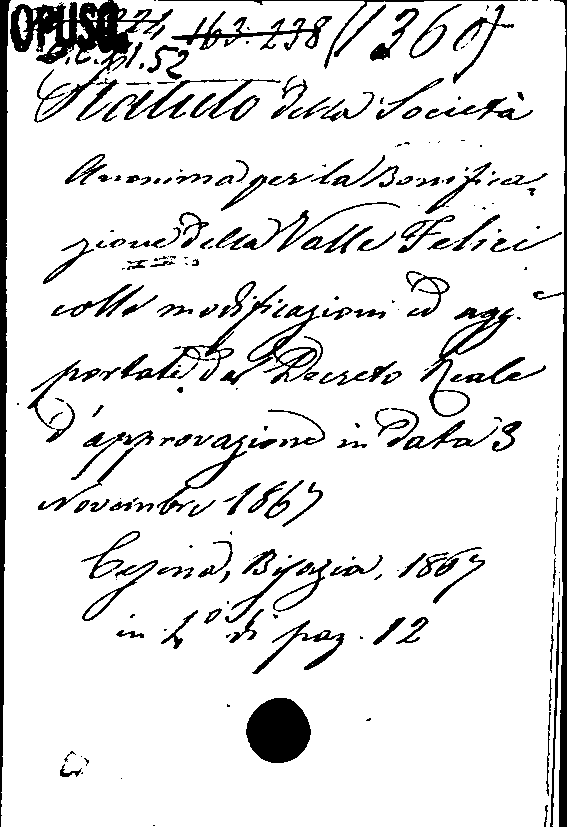 OPUSC. 224 163.238 (1360)
B.C. pl. 52
Statuto della Società
Anonima per la Bonifica-
zione della Valle Felici
colle modificazioni ed agg.
portate dal Decreto Reale
d'approvazione in data 3
Novembre 1867
Cesena, Biasini, 1867
in 4° di pag. 12